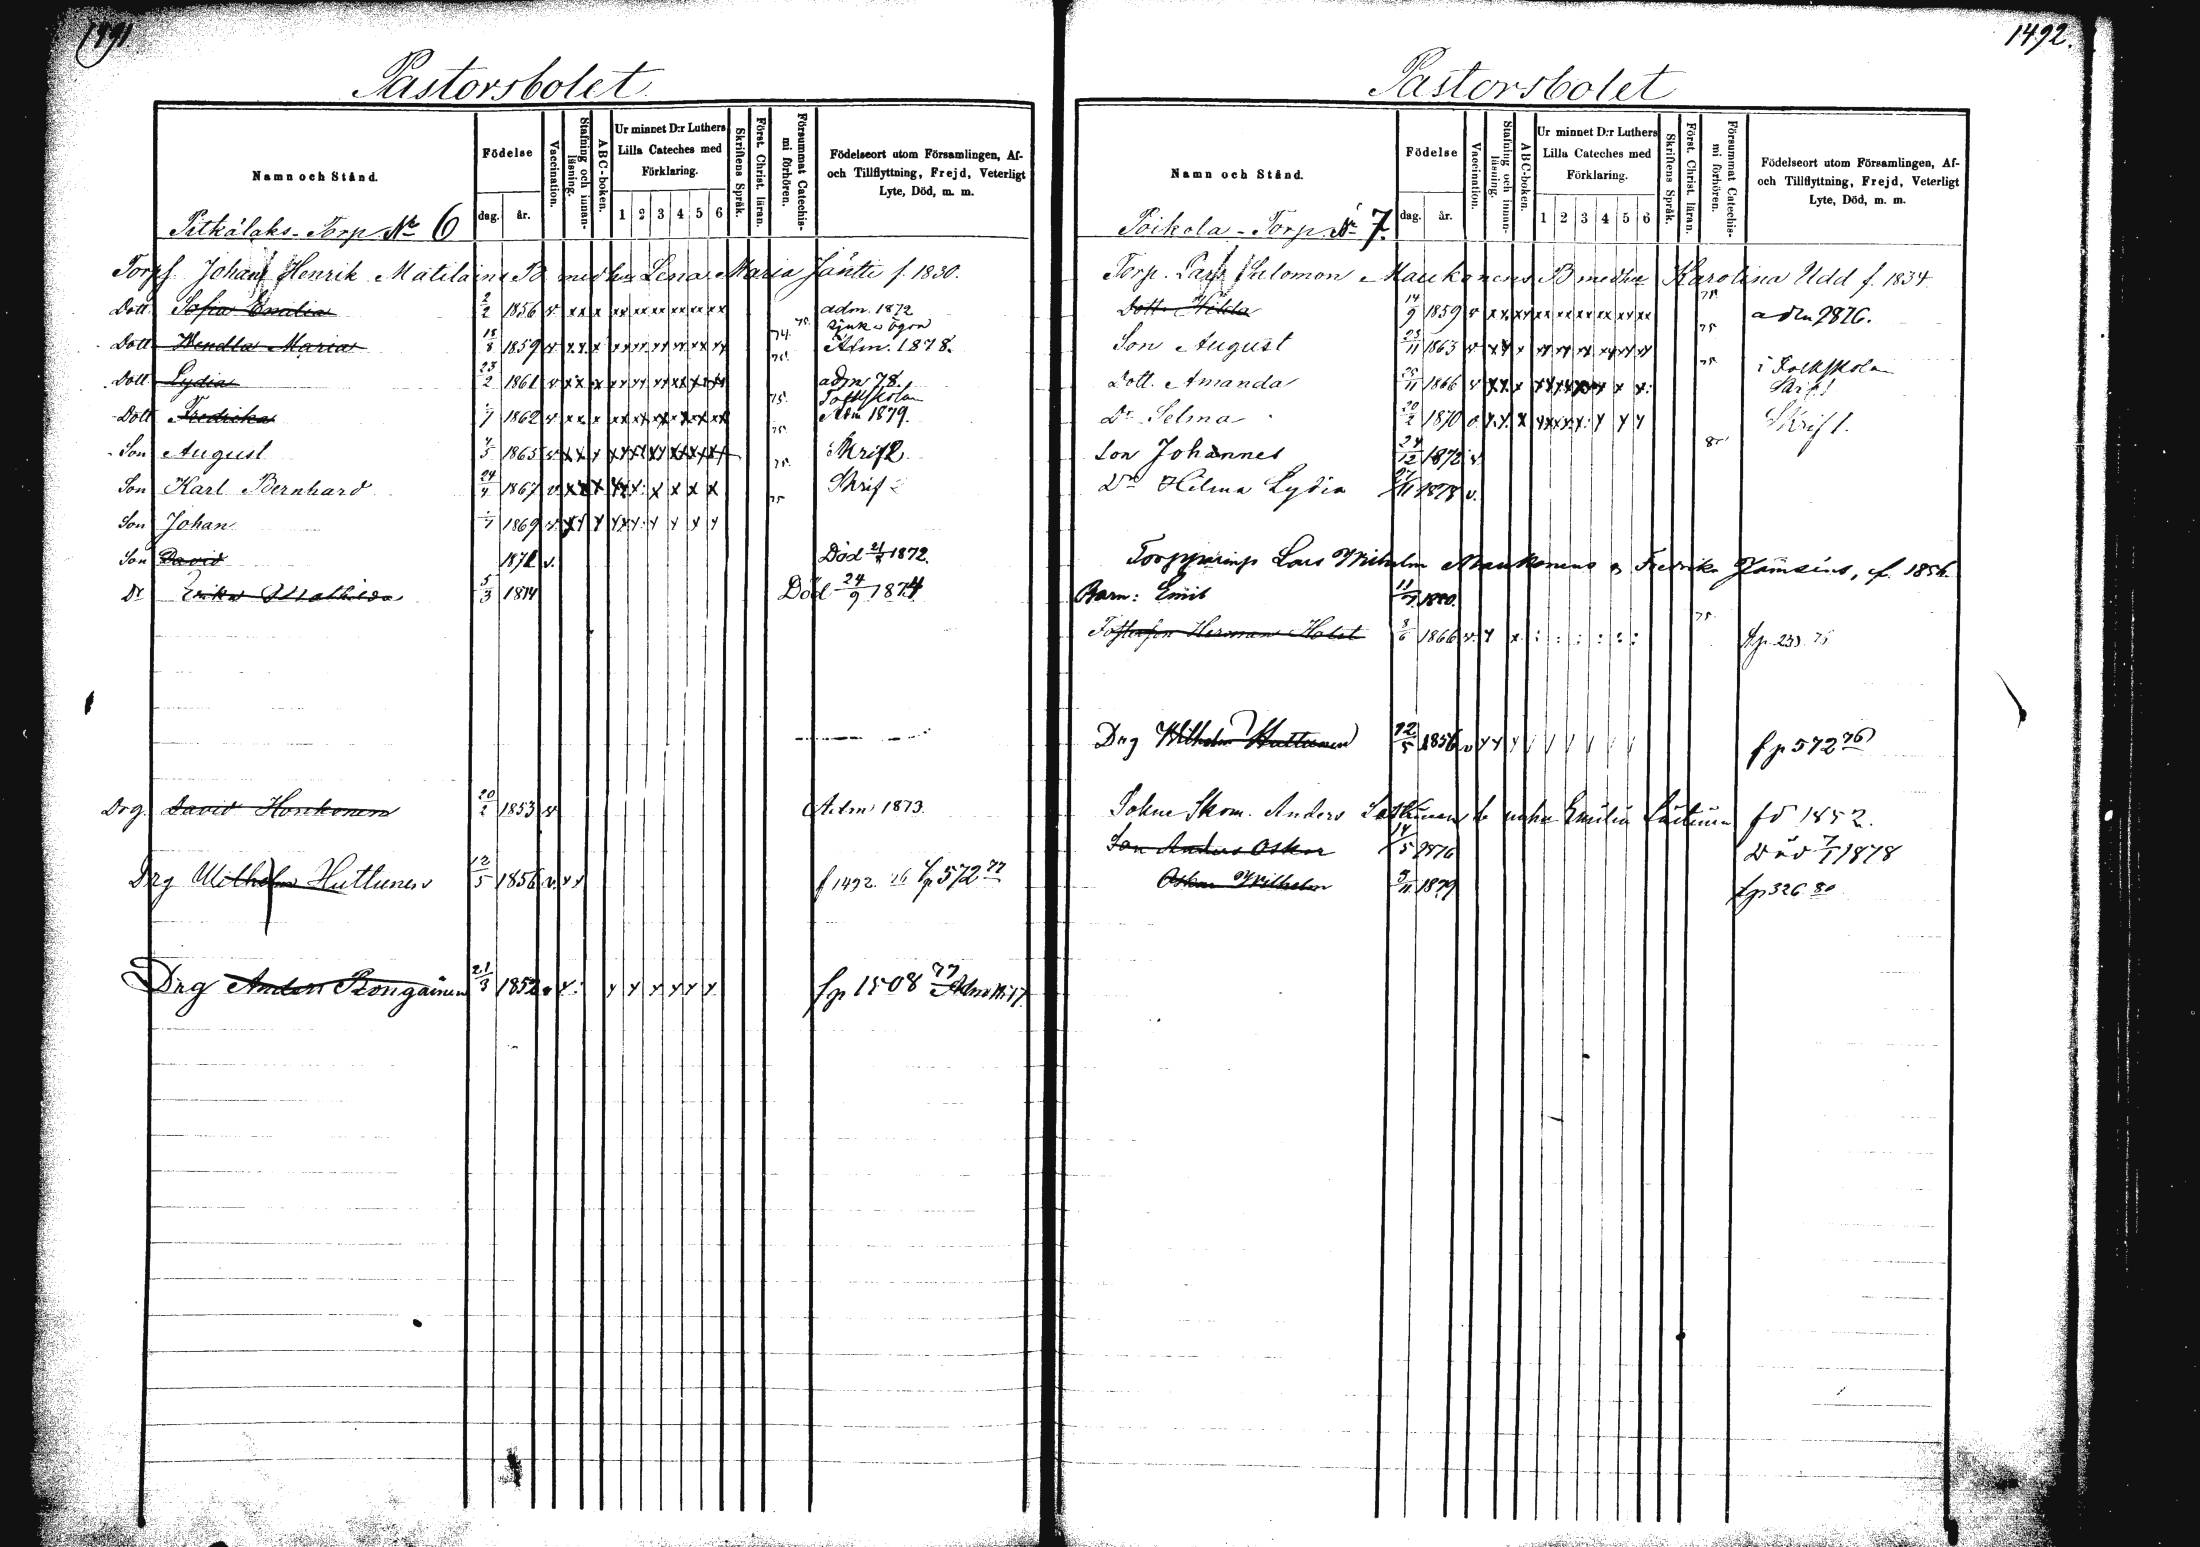 1491.
Pastorsbolet
Namn och Stånd.
Födelse
dag.
år.
Vaccination.
Stafning och innan-läsning.
ABC-boken.
Ur minnet D:r Luthers Lilla Cateches med Förklaring.
1 2 3 4 5 6
Skriftens Språk.
Först. Christ. läran.
Försummat Catechis-mi förhören.
Födelseort utom Församlingen, Af- och Tillflyttning, Frejd, Veterligt Lyte, Död, m. m.
Pitkälaks-Torp No 6
Torp. Johan Henrik Matilains B. med hu Lena Maria Jäntti f. 1830.
Dott. Sofia Emilia 2/2 1856 v xx x xx xx xx xx xx xx adm. 1872
sjuka ögon
Dott Wendla Maria 18/8 1859 v xx x xx xx xx xx xx xx 74. 75. Adm. 1878.
Dott Lydia 23/2 1861 v xx x xx xx xx xx xx xx 75. adm 78.
Folkskolan
Dott Fredrika 1/7 1862 v xx x xx xx xx xx xx xx 75. Adm 1879.
Son August 4/5 1865 v xx x xx xx xx xx xx xx 75. Skrift
Son Karl Bernhard 24/4 1867 v xx x xx x x x x x 75 Skrif
Son Johan 1/7 1869 v xy y yx y y y y y
Son David 1872 v. Död 1872.
Dr Erika Mathilda 5/3 1874 Död 24/9 1874
Drg. David Honkonen 20/2 1853 v Adm 1873.
Drg Wilhelm Huttunen 12/5 1856 v. xx f 1492. 76 fp 572 77
Drg Anders Rongainen 21/3 1852 v y: y y y y y y fp 1508 77
1492.
Pastorsbolet
Namn och Stånd.
Födelse
dag.
år.
Vaccination.
Stafning och innan-läsning.
ABC-boken.
Ur minnet D:r Luthers Lilla Cateches med Förklaring.
1 2 3 4 5 6
Skriftens Språk.
Först. Christ. läran.
Försummat Catechis-mi förhören.
Födelseort utom Församlingen, Af- och Tillflyttning, Frejd, Veterligt Lyte, Död, m. m.
Poikola-Torp No 7.
Torp. Lars Salomon Maukonens B med hu Karolina Udd f. 1834
Dott. Hilda 14/9 1859 v xx xx xx xx xx xx xx xx 75. adm 1876.
Son August 23/11 1863 v xx x xx xx xx xx xx xx 75
Dott. Amanda 25/11 1866 v xx x xx xx xx x x x: 75 i Folkskolan
Skrift
Dr Selma 20/2 1870 v. x.x. x xx xx x y y y Skrift.
Son Johannes 24/12 1872 v. 80
Dr Hilma Lydia 27/11 1878 v.
Lars Wilhelm Maukonens o Fredrika Jämsens, f. 1856.
Barn: Emil 11/7 1880.
Herman Holst 8/6 1866 v. y x : : : : : : 75. fp 233 75
Drg Wilhelm Huttunen 12/5 1856 v y y y / / / / / / fp 572 76
Sokne Skom. Anders Emilia fd 1852.
Son Anders Oskar 14/5 1876 Död 7/1 1878
Oskar Wilhelm 3/11 1879 fp 326 80